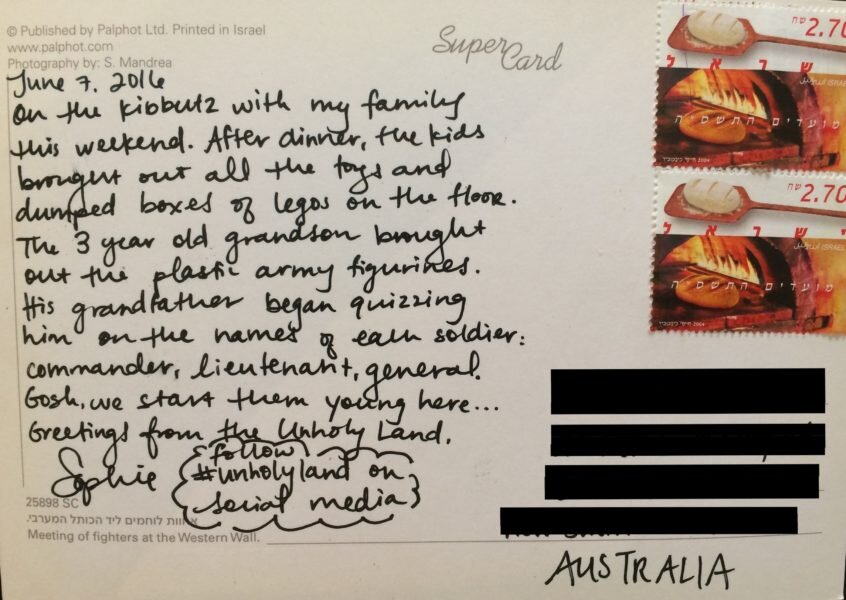 © Published by Palphot Ltd. Printed in Israel
www.palphot.com
Photography by: S. Mandrea
Super Card
June 7, 2016
On the kibbutz with my family
this weekend. After dinner, the kids
brought out all the toys and
dumped boxes of legos on the floor.
The 3 year old grandson brought
out the plastic army figurines.
His grandfather began quizzing
him on the names of each soldier:
commander, lieutenant, general.
Gosh, we start them young here...
Greetings from the Unholy Land.
Sophie
follow
#unholyland on
social media
25898 SC
לוחמים ליד הכותל המערבי.
Meeting of fighters at the Western Wall.
2.70
ישראל
ISRAEL
מועדים התשס"ה
2004
2.70
ישראל
ISRAEL
מועדים התשס"ה
2004
AUSTRALIA